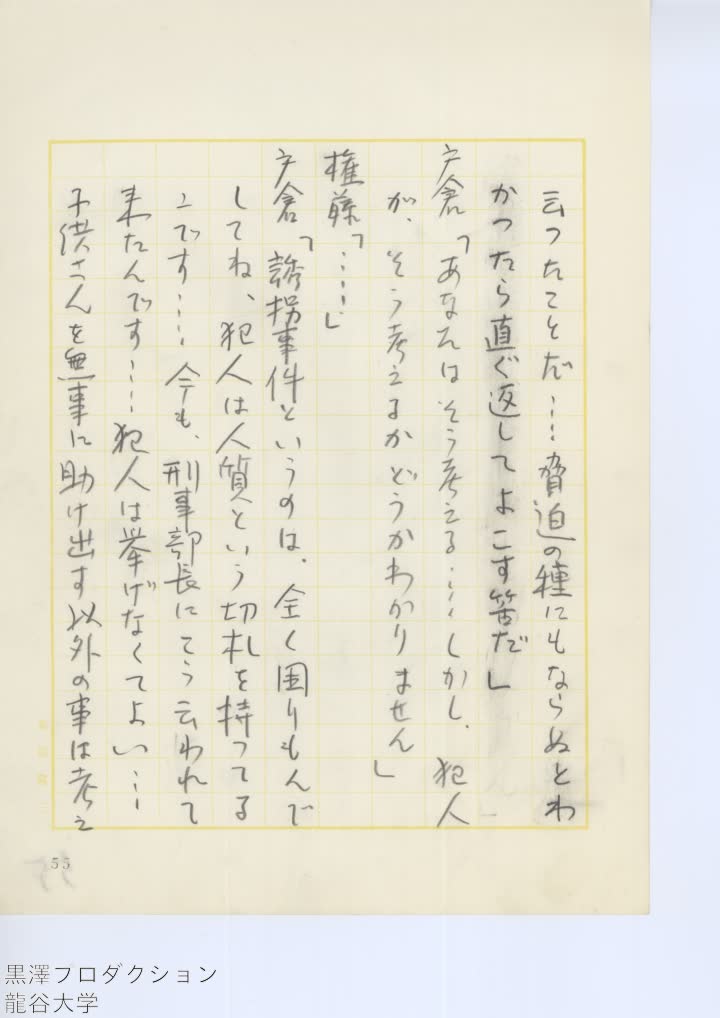 云つたことだ……脅迫の種にもならぬとわ
かつたら直ぐ返してよこす筈だ」
戸倉「あなたはそう考える……しかし、犯人
が、そう考えるかどうかわかりません」
権藤「……」
戸倉「誘拐事件というのは、全く困りもんで
してね、犯人は人質という切札を持つてる
んです……今も、刑事部長にそう云われて
来たんです……犯人は挙げなくてよい……
子供さんを無事に助け出す以外の事は考え
55
黒澤プロダクション
龍谷大学